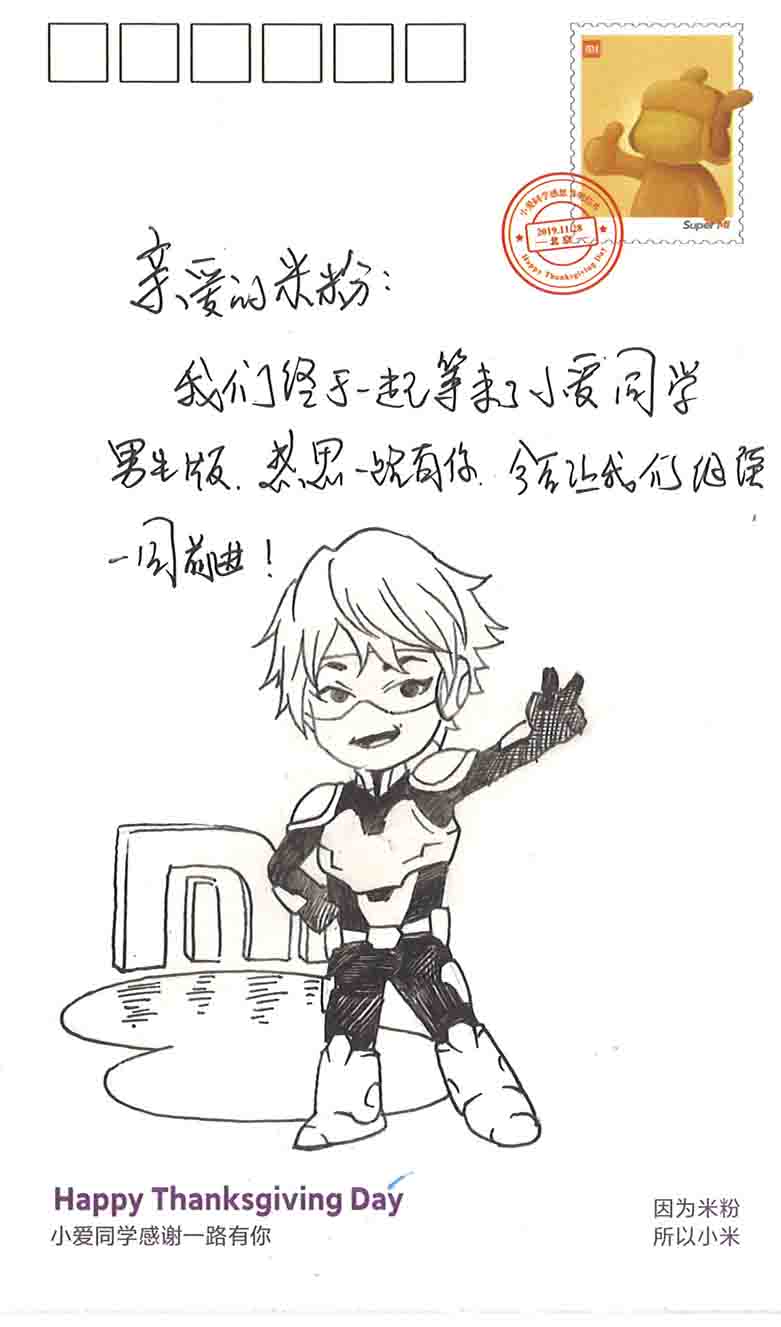 MI
Super MI
小爱同学感恩节明信片
2019.11.28
北京
Happy Thanksgiving Day
亲爱的米粉：
我们终于一起等来了小爱同学
男生版、感恩一路有你、今后让我们继续
一同前进！
Happy Thanksgiving Day
小爱同学感谢一路有你
因为米粉
所以小米